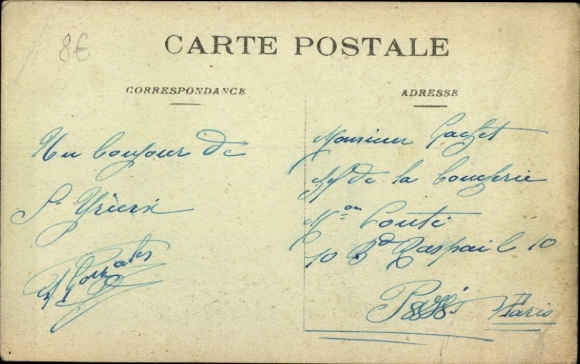 8€
CARTE POSTALE
CORRESPONDANCE
Un bonjour de
St Yrieix
ADRESSE
Monsieur Gachet
de la boucherie
Mon Conté
10 Bd Raspail 10
Paris